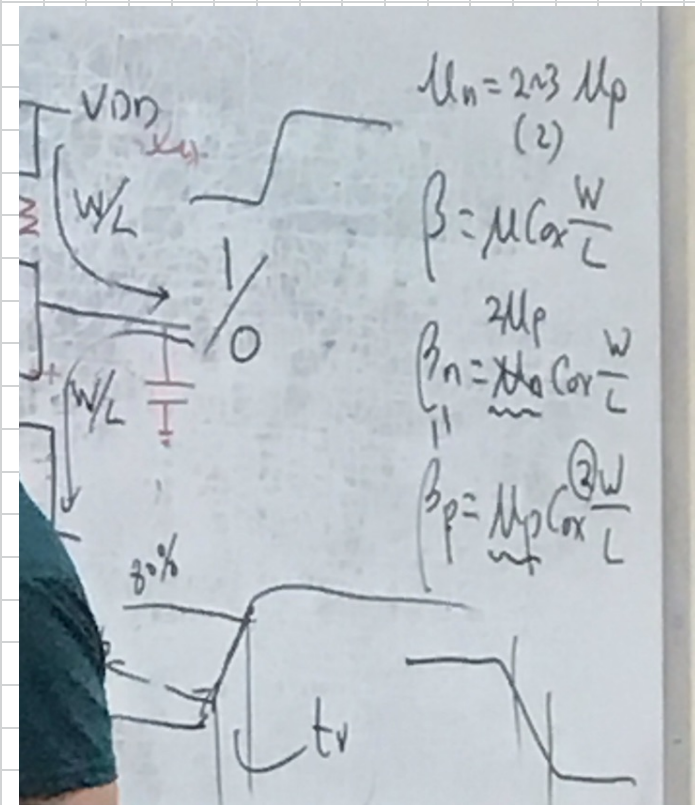 VDD
W/L
1/0
W/L
μn = 2~3 μp
(2)
β = μCox W/L
2μp
βn = μn Cox W/L
||
βp = μp Cox ② W/L
80%
tr